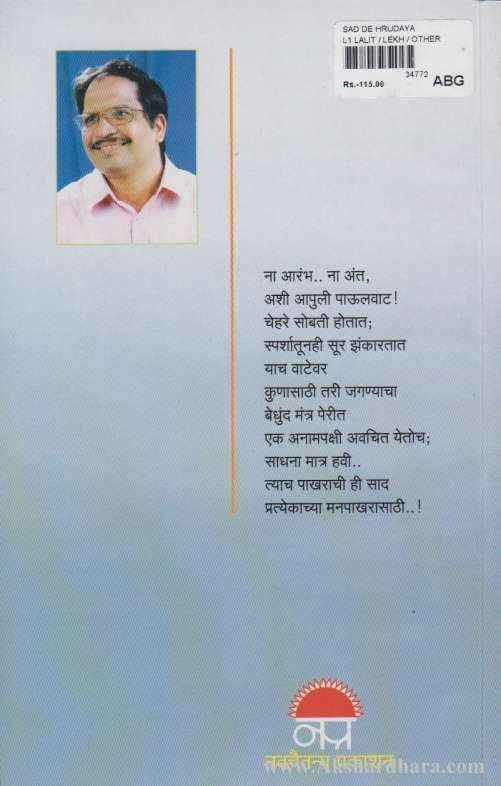 SAD DE HRUDAYA
L1 LALIT / LEKH / OTHER
34772
Rs.-115.00
ABG
ना आरंभ.. ना अंत,
अशी आपुली पाऊलवाट!
चेहरे सोबती होतात;
स्पर्शातूनही सूर झंकारतात
याच वाटेवर
कुणासाठी तरी जगण्याचा
बेधुंद मंत्र पेरीत
एक अनामपक्षी अवचित येतोच;
साधना मात्र हवी..
त्याच पाखराची ही साद
प्रत्येकाच्या मनपाखरासाठी..!
नप्र
नवचैतन्य प्रकाशन
www.Akshardhara.com